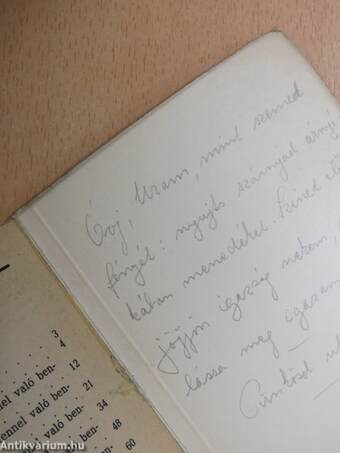 Óvj, Uram, mint szemed
fényét: nyújts szárnyad árnyé
kában menedéket. Színed elő
jöjjön igazság nekem,
lássa meg igazam
Pünkösd
3
4
nnel való ben-
12
ennel való ben-
21
való ben-
34
48
60
Antikvárium.hu